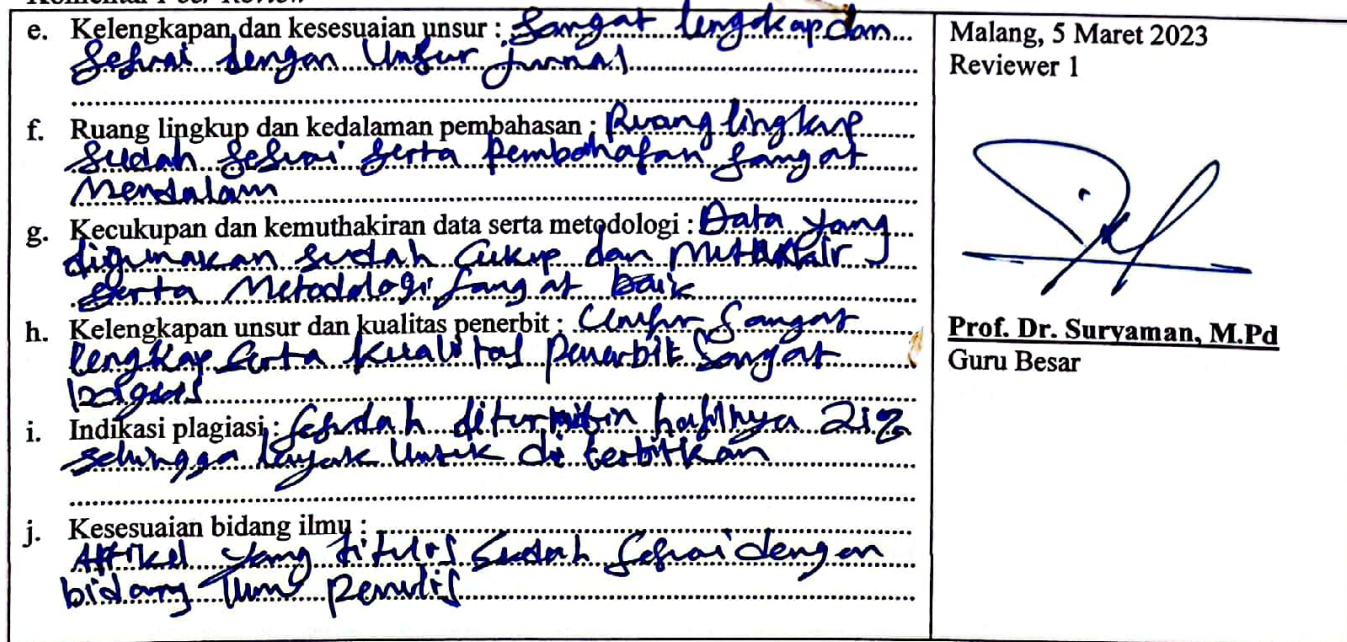 Komentar Peer Review
e. Kelengkapan dan kesesuaian unsur : Sangat lengkap dan
Sesuai dengan Unsur jurnal
f. Ruang lingkup dan kedalaman pembahasan : Ruang lingkup
Sudah Sesuai Serta Pembahasan Sangat
Mendalam
g. Kecukupan dan kemuthakiran data serta metodologi : Data yang
digunakan sudah Cukup dan Muthakir
serta Metodologi Sangat baik
h. Kelengkapan unsur dan kualitas penerbit : Unsur Sangat
lengkap serta kualitas penerbit Sangat
bagus
i. Indikasi plagiasi : Sesudah diturnitin hasilnya 21%
sehingga layak Untuk di terbitkan
j. Kesesuaian bidang ilmu :
Artikel yang ditulis Sudah Sesuai dengan
bidang Ilmu Penulis
Malang, 5 Maret 2023
Reviewer 1
Prof. Dr. Suryaman, M.Pd
Guru Besar